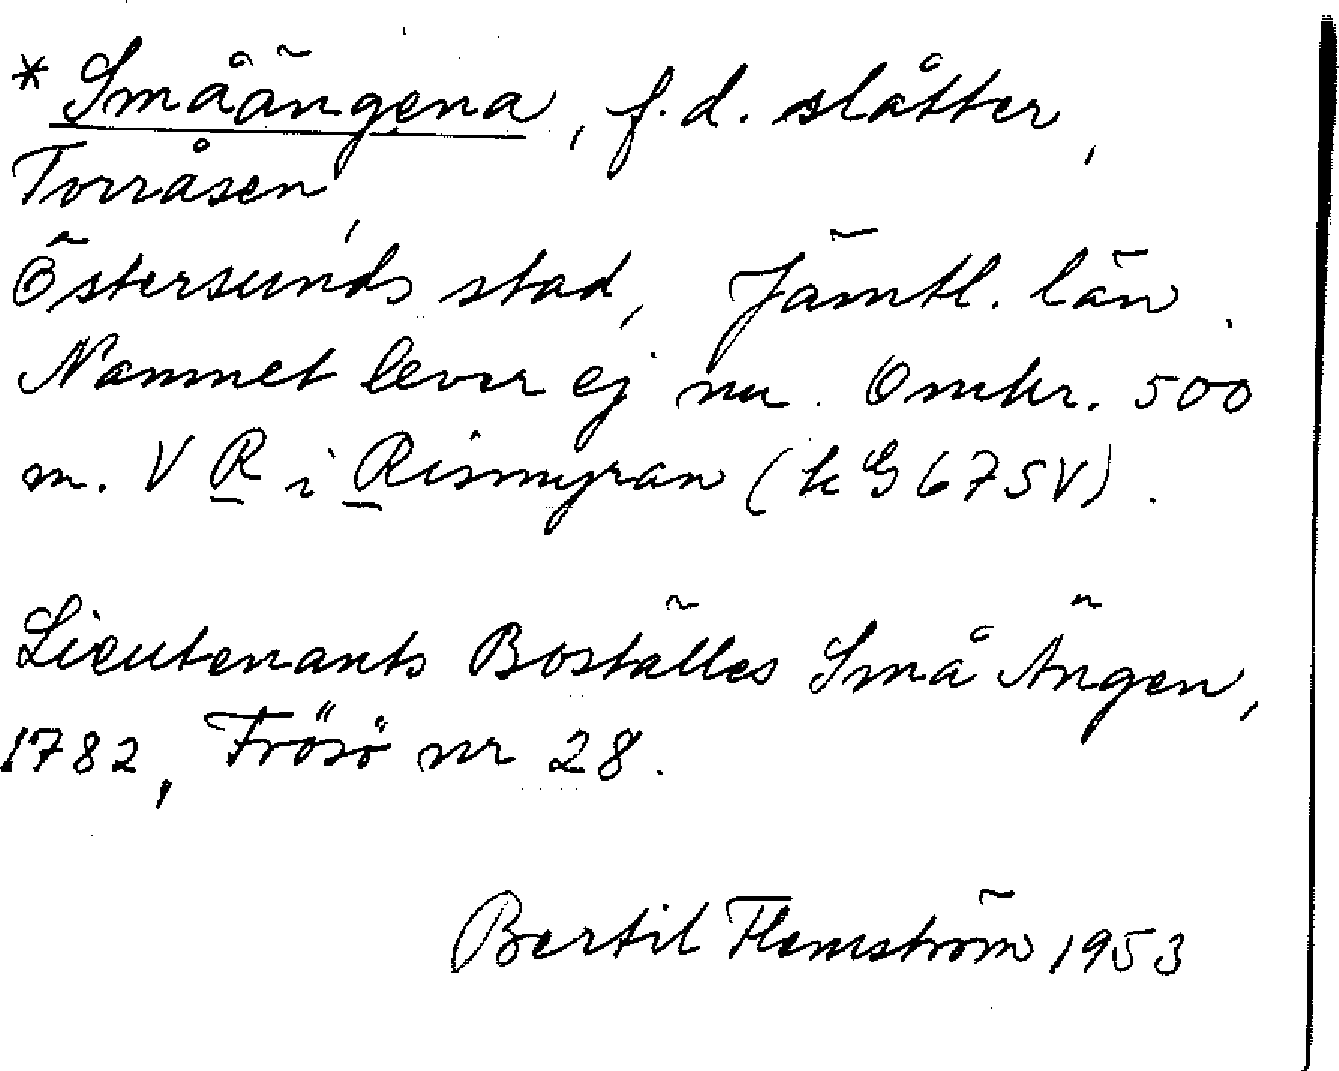 * Småängena, f.d. slåtter,
Torråsen,
Östersunds stad, Jämtl. län.
Namnet lever ej nu. Omkr. 500
m. V R i Rismyran (k G675V).
Lieutenants Boställes Små Ängen,
1782, Frösö nr 28.
Bertil Flemström 1953